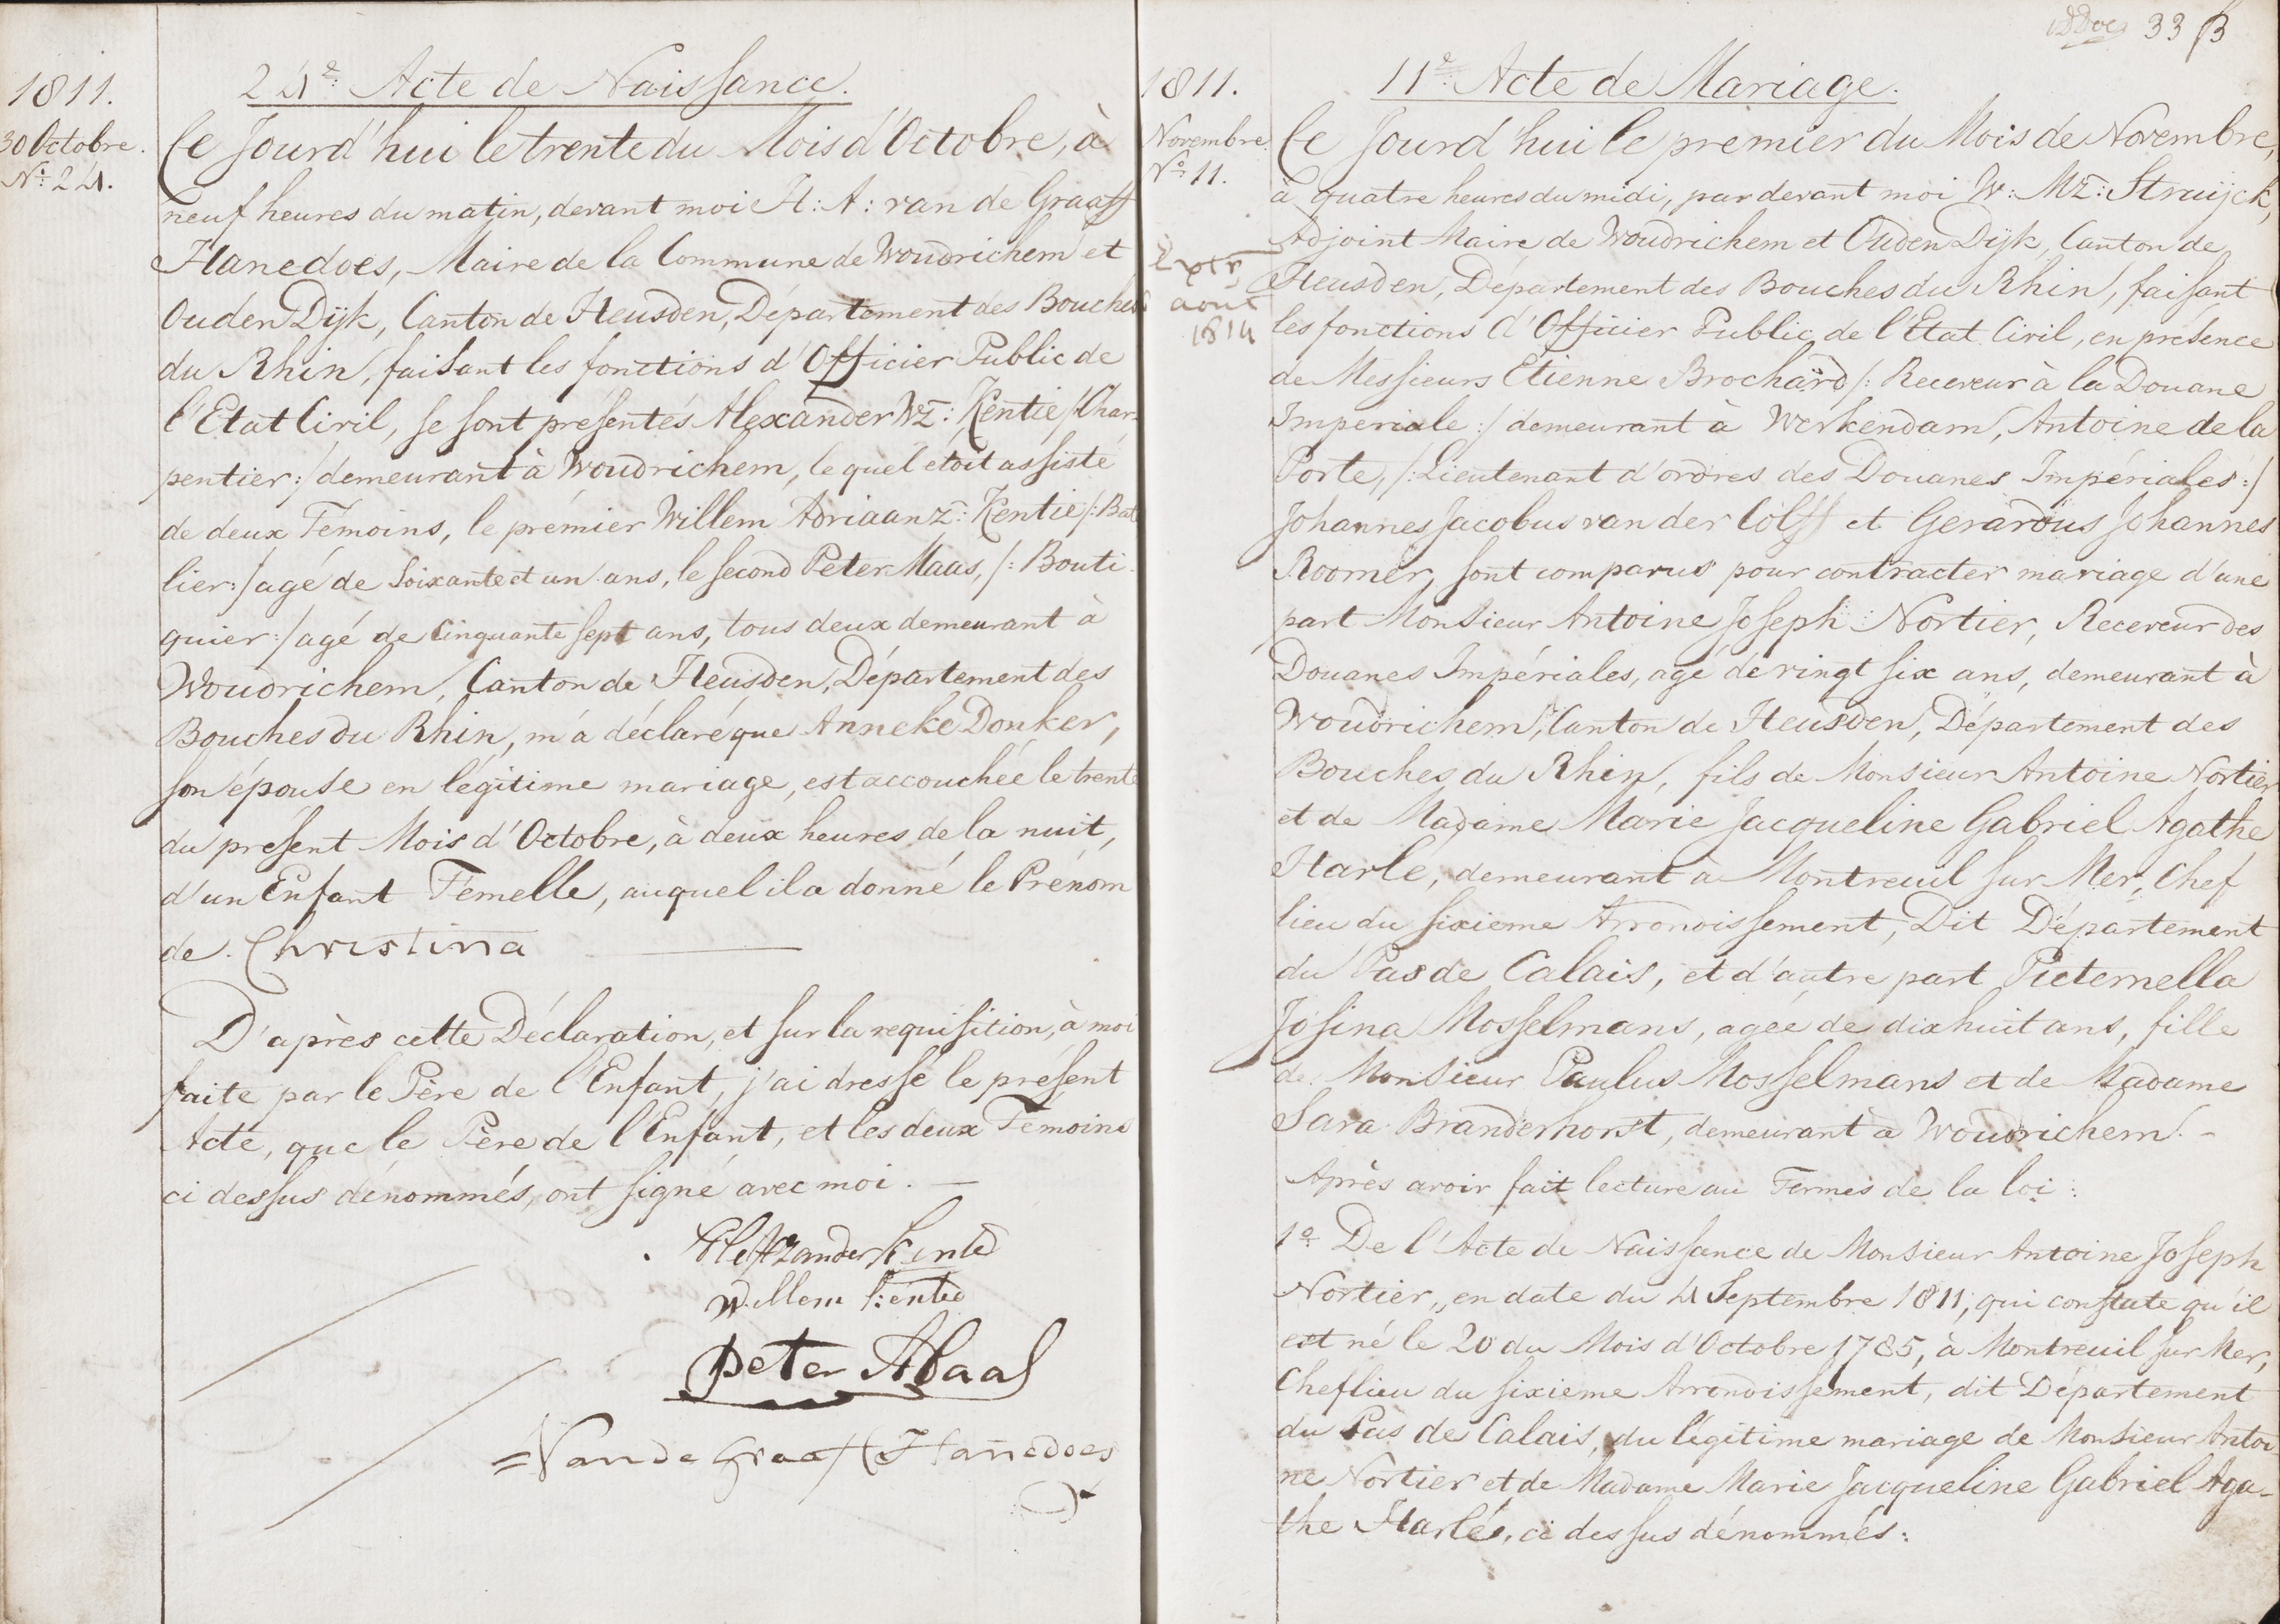 1811.
30 Octobre.
Nº: 24.
24e: Acte de Naissance.
Ce Jourd'hui le trente du Mois d'Octobre, à
neuf heures du matin, devant moi H: A: van de Graaff
Hanedoes, Maire de la Commune de Woudrichem et
Ouden Dijk, Canton de Heusden, Département des Bouches
du Rhin, faisant les fonctions d'Officier Public de
l'Etat Civil, se sont présentés Alexander Wz: Kentie /:Char-
pentier:/ demeurant à Woudrichem, le quel étoit assisté
de deux Témoins, le prémier Willem Adriaanz: Kentie /: Bate
lier:/ agé de Soixante et un ans, le second Peter Maas, /: Bouti-
quier:/ agé de Cinquante sept ans, tous deux demeurant à
Woudrichem, Canton de Heusden, Département des
Bouches du Rhin, m'a déclaré que Anneke Donker,
son épouse en légitime mariage, est accouchée le trente
du présent Mois d'Octobre, à deux heures de la nuit,
d'un Enfant Femelle, auquel il a donné le Prénom
de Christina
D'après cette Déclaration, et sur la requisition, à moi
faite par le Père de l'Enfant, j'ai dressé le présent
Acte, que le Père de l'Enfant, et les deux Témoins
ci dessus dénommés, ont signé avec moi.
Alexzander Kentie
Willem Kentie
Peter Maas
Van de Graaff Hanedoes
33 B
1811.
Novembre.
Nº 11.
Extr
aout
1814
11e: Acte de Mariage.
Ce Jourd'hui le premier du Mois de Novembre,
à quatre heures du midi, par devant moi W: Mz: Struijck,
Adjoint Maire de Woudrichem et Ouden Dijk, Canton de
Heusden, Département des Bouches du Rhin, faisant
les fonctions d'Officier Public de l'Etat Civil, en présence
de Messieurs Etienne Brochard /: Receveur à la Douane
Imperiale:/ demeurant à Werkendam, Antoine de la
Porte, /: Lieutenant d'ordres des Douanes Impériales:/
Johannes Jacobus van der Colff et Gerardus Johannes
Roomer, sont comparus pour contracter mariage d'une
part Monsieur Antoine Joseph Nortier, Receveur des
Douanes Impériales, agé de vingt six ans, demeurant à
Woudrichem, Canton de Heusden, Département des
Bouches du Rhin, fils de Monsieur Antoine Nortier
et de Madame Marie Jacqueline Gabriel Agathe
Harle, demeurant à Montreuil sur Mer, Chef
lieu du sixieme Arrondissement, Dit Département
du Pas de Calais, et d'autre part Pieternella
Josina Mosselmans, agée de dix huit ans, fille
de Monsieur Paulus Mosselmans et de Madame
Sara Branderhorst, demeurant à Woudrichem.-
Après avoir fait lecture au Termes de la loi:
1º De l'Acte de Naissance de Monsieur Antoine Joseph
Nortier, en date du 4 Septembre 1811, qui constate qu'il
est né le 20 du Mois d'Octobre 1785, à Montreuil sur Mer,
Cheflieu du sixieme Arrondissement, dit Département
du Pas de Calais, du légitime mariage de Monsieur Antoi
ne Nortier et de Madame Marie Jacqueline Gabriel Aga-
the Harlés, ci dessus dénommés: